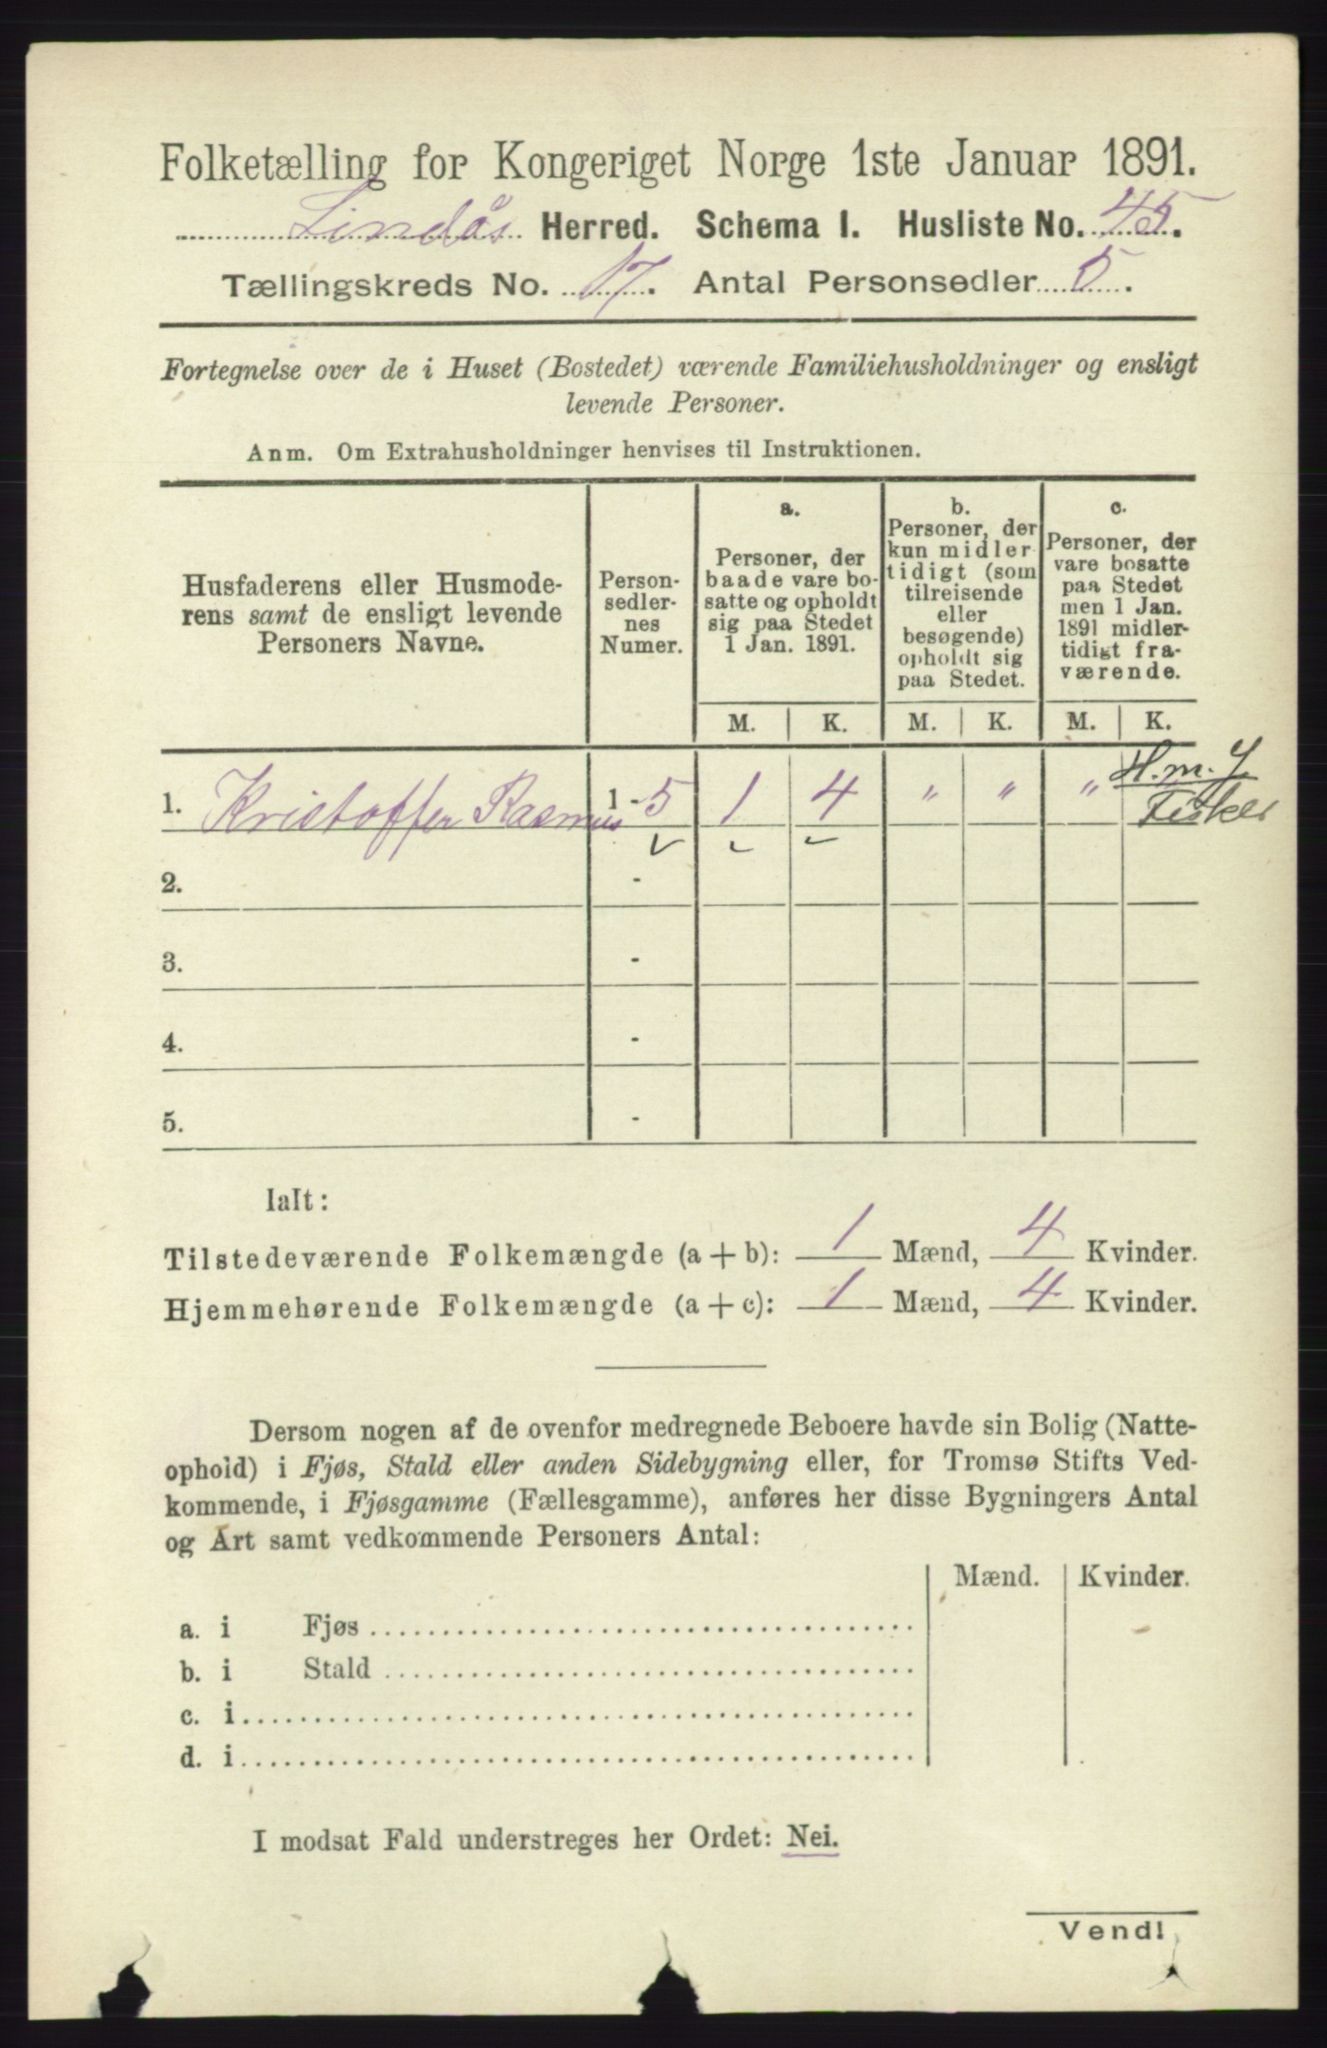 Folketælling for Kongeriget Norge 1ste Januar 1891.
Lindås Herred. Schema I. Husliste No. 45.
Tællingskreds No. 17. Antal Personsedler 5.
Fortegnelse over de i Huset (Bostedet) værende Familiehusholdninger og ensligt
levende Personer.
Anm. Om Extrahusholdninger henvises til Instruktionen.
Husfaderens eller Husmode-
rens samt de ensligt levende
Personers Navne.
Person-
sedler-
nes
Numer.
a.
Personer, der
baade vare bo-
satte og opholdt
sig paa Stedet
1 Jan. 1891.
b.
Personer, der
kun midler-
tidigt (som
tilreisende
eller
besøgende)
opholdt sig
paa Stedet.
c.
Personer, der
vare bosatte
paa Stedet
men 1 Jan.
1891 midler-
tidigt fra-
værende.
M. K. M. K. M. K.
1. Kristoffer Rasmus 1 - 5 1 4 " " " H. m. J.
Fisker
2. -
3. -
4. -
5. -
Ialt:
Tilstedeværende Folkemængde (a + b): 1 Mænd, 4 Kvinder.
Hjemmehørende Folkemængde (a + c): 1 Mænd, 4 Kvinder.
Dersom nogen af de ovenfor medregnede Beboere havde sin Bolig (Natte-
ophold) i Fjøs, Stald eller anden Sidebygning eller, for Tromsø Stifts Ved-
kommende, i Fjøsgamme (Fællesgamme), anføres her disse Bygningers Antal
og Art samt vedkommende Personers Antal:
Mænd. Kvinder.
a. i Fjøs
b. i Stald
c. i
d. i
I modsat Fald understreges her Ordet: Nei.
Vend!